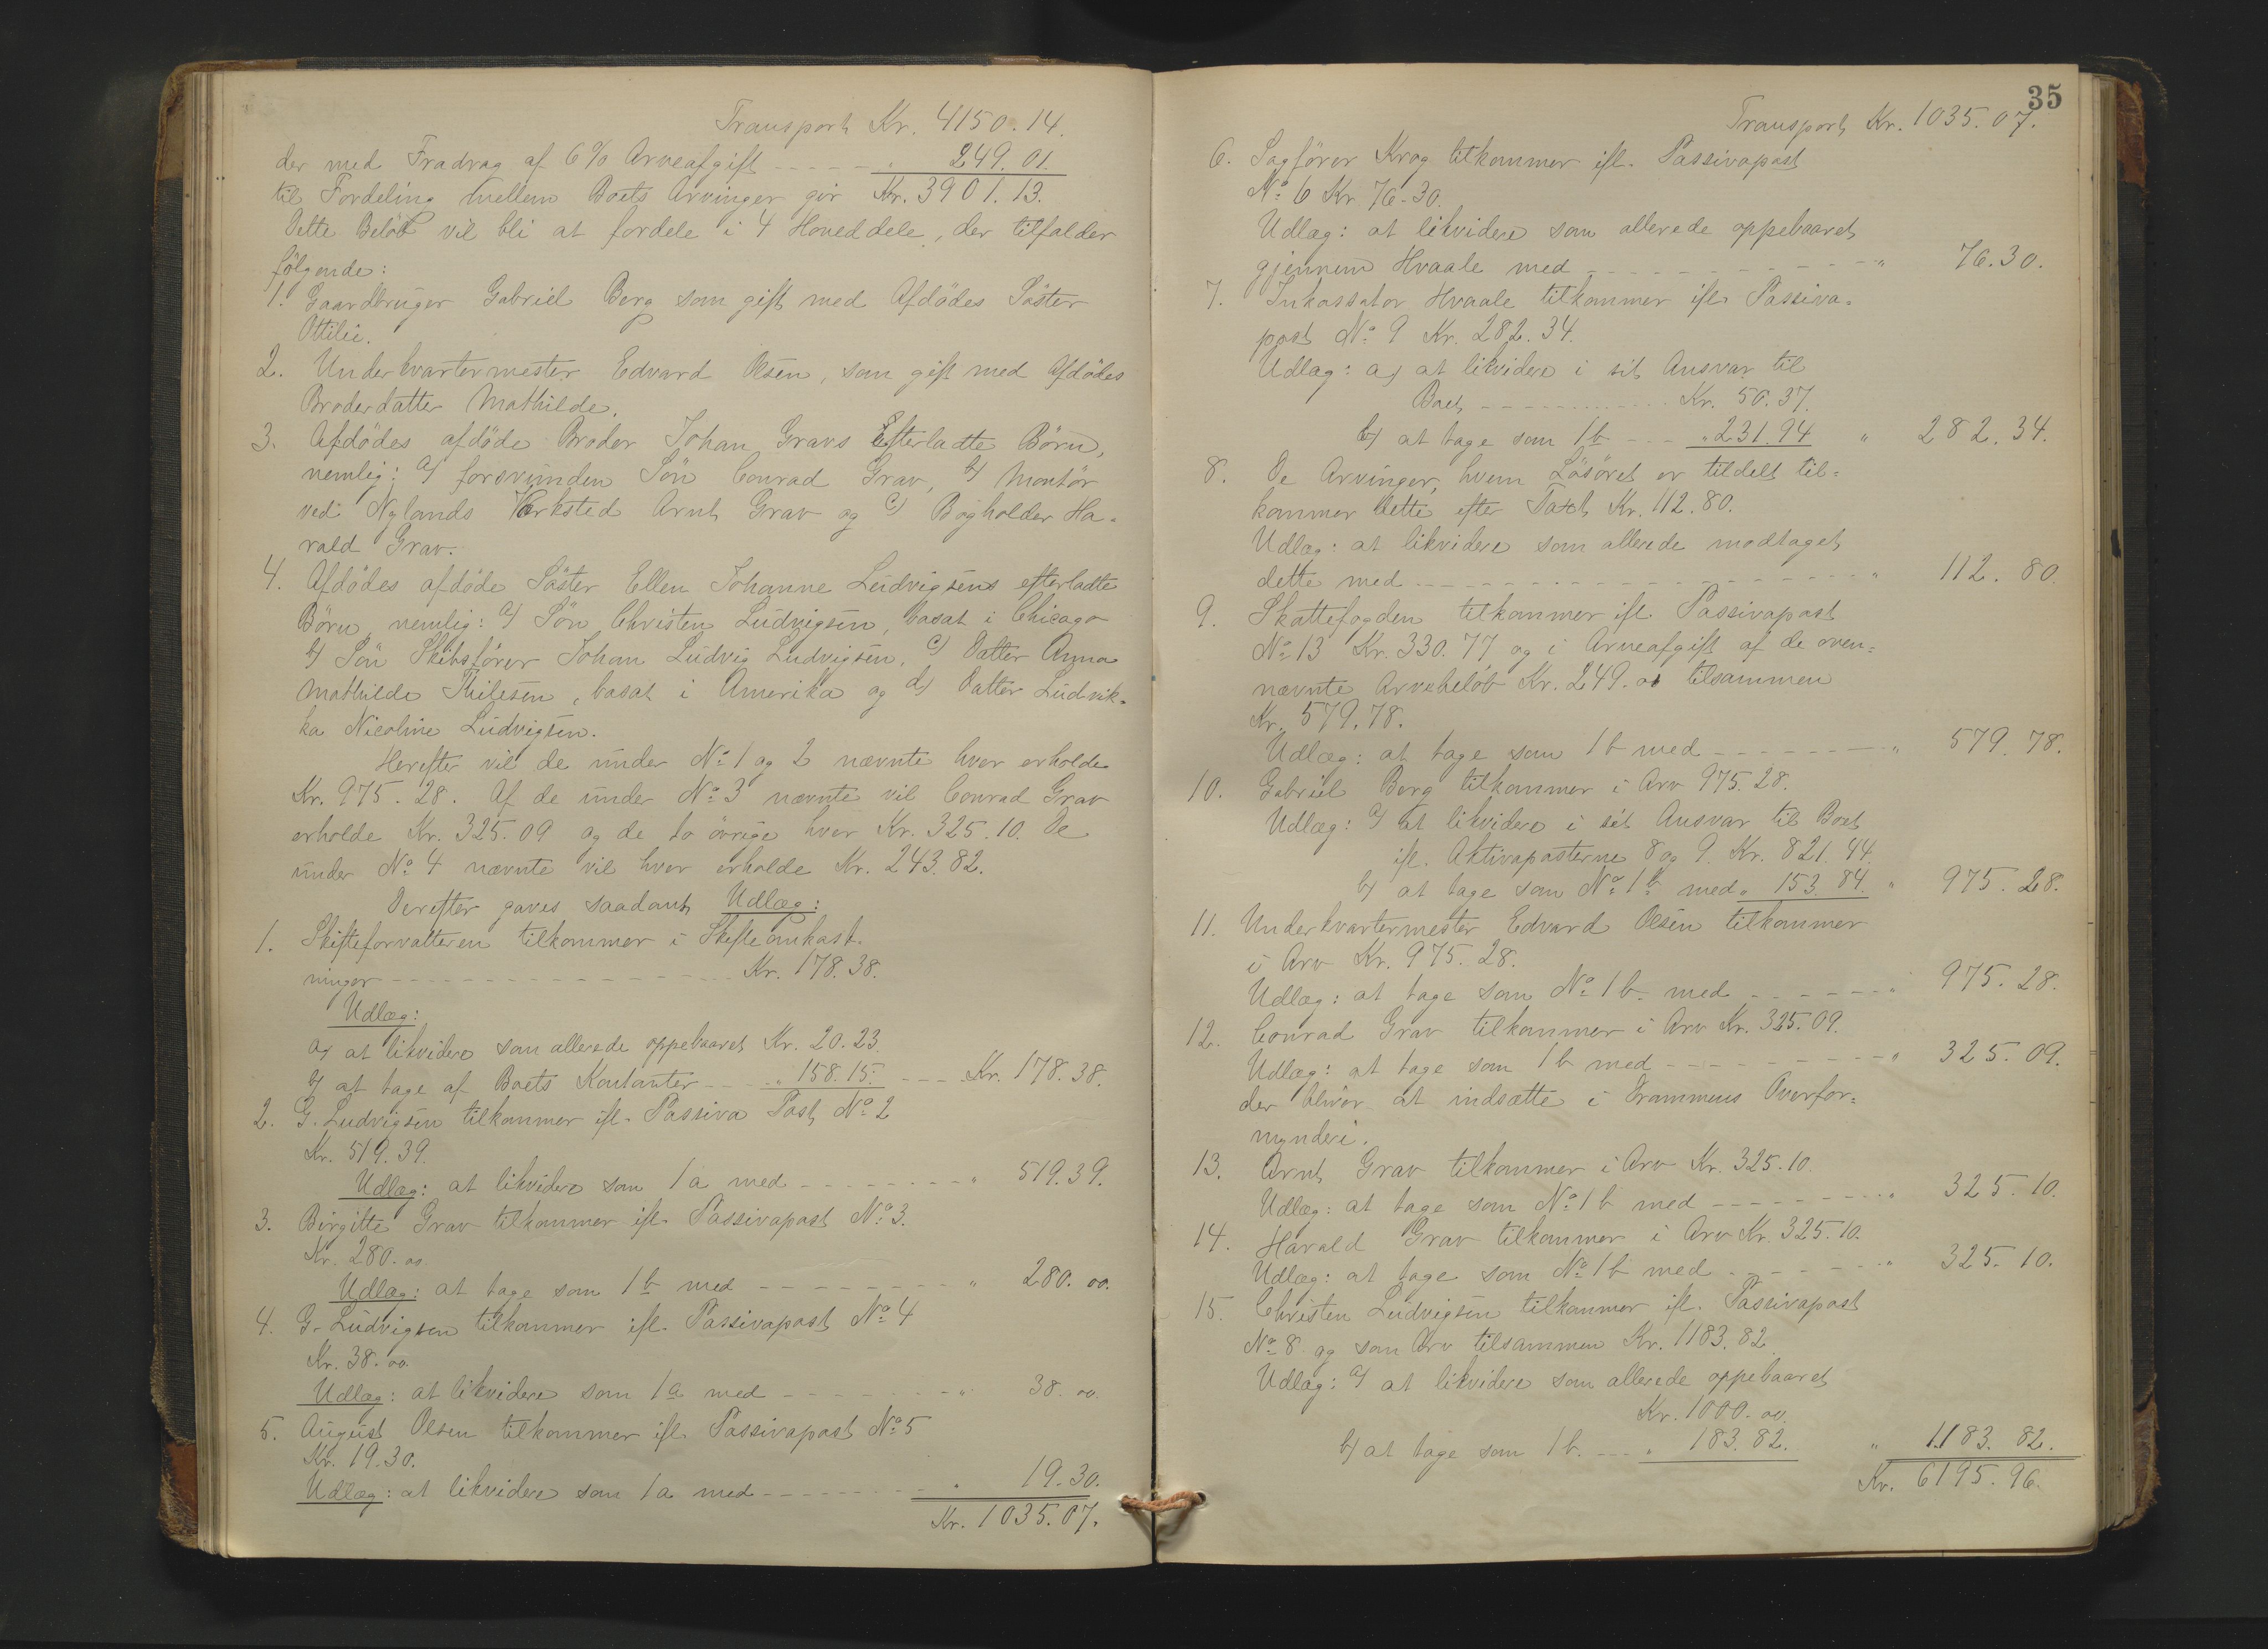 Transport Kr. 4150.14.
der med Fradrag af 6% Arveafgift - - - - " 249.01.
til Fordeling mellem Boets Arvinger gir Kr. 3901.13.
Dette Beløb vil bli at fordele i 4 Hoveddele, der tilfalder
følgende:
1. Gaardbruger Gabriel Berg som gift med Afdødes Søster
Ottilie.
2. Underkvartermester Edvard Olsen, som gift med Afdødes
Broderdatter Mathilde.
3. Afdødes afdøde Broder Johan Gravs Efterladte Børn,
nemlig: a) forsvunden Søn Conrad Grav, b) Montør
ved Nylands Værksted Arnt Grav og c) Bogholder Ha-
rald Grav.
4. Afdødes afdøde Søster Ellen Johanne Ludvigsens efterladte
Børn nemlig: a) Søn Christen Ludvigsen, bosat i Chicago
b) Søn Skibsfører Johan Ludvig Ludvigsen, c) Datter Anna
Mathilde Thilesen, bosat i Amerika og d) Datter Ludvik-
ka Nicoline Ludvigsen.
Herefter vil de under No 1 og 2 nævnte hver erholde
Kr. 975.28. Af de under No 3 nævnte vil Conrad Grav
erholde Kr. 325.09 og de to øvrige hver Kr. 325.10. De
under No 4 nævnte vil hver erholde Kr. 243.82.
Derefter gaves saadant Udlæg:
1. Skifteforvalteren tilkommer i Skifteomkost-
ninger - - - - Kr. 178.38.
Udlæg:
a) at likvidere som allerede oppebaaret Kr. 20.23.
b) at tage af Boets Kontanter - - - " 158.15. - - - Kr. 178.38.
2. G. Ludvigsen tilkommer ifl. Passiva Post No 2
Kr. 519.39.
Udlæg: at likvidere som 1a med - - - - " 519.39.
3. Birgitte Grav tilkommer ifl. Passivapost No 3.
Kr. 280.00
Udlæg: at tage som 1b med - - - - " 280.00.
4. G. Ludvigsen tilkommer ifl. Passivapost No 4
Kr. 38.00.
Udlæg: at likvidere som 1a med - - - - " 38.00.
5. August Olsen tilkommer ifl. Passivapost No 5
Kr. 19.30.
Udlæg: at likvidere som 1a med - - - - " 19.30.
Kr. 1035.07.
35
Transport Kr. 1035.07.
6. Sagfører Krog tilkommer ifl. Passivapost
No 6 Kr. 76.30.
Udlæg: at likvidere som allerede oppebaaret
gjennem Hvaale med - - - - " 76.30.
7. Inkassator Hvaale tilkommer ifl. Passiva-
post No 9 Kr. 282.34.
Udlæg: a) at likvidere i sit Ansvar til
Boet - - - - Kr. 50.37.
b) at tage som 1b - - - " 231.94 " 282.34.
8. De Arvinger, hvem Løsøret er tildelt til-
kommer dette efter Taxt Kr. 112.80.
Udlæg: at likvidere som allerede modtaget
dette med - - - - " 112.80.
9. Skattefogden tilkommer ifl. Passivapost
No 13 Kr. 330.77 og i Arveafgift af de oven-
nævnte Arvebeløb Kr. 249.01 tilsammen
Kr. 579.78.
Udlæg: at tage som 1b med - - - - " 579.78.
10. Gabriel Berg tilkommer i Arv 975.28.
Udlæg: a) at likvidere i sit Ansvar til Boet
ifl. Aktivaposterne 8 og 9. Kr. 821.44.
b) at tage som No 1b med " 153.84. " 975.28.
11. Underkvartermester Edvard Olsen tilkommer
i Arv Kr. 975.28.
Udlæg: at tage som No 1b. med - - - - " 975.28.
12. Conrad Grav tilkommer i Arv Kr. 325.09.
Udlæg: at tage som 1b med - - - - " 325.09.
der bliver at indsætte i Drammens Overfor-
mynderi.
13. Arnt Grav tilkommer i Arv Kr. 325.10.
Udlæg: at tage som No 1b med - - - - " 325.10.
14. Harald Grav tilkommer i Arv Kr. 325.10.
Udlæg: at tage som No 1b med - - - - " 325.10.
15. Christen Ludvigsen tilkommer ifl. Passivapost
No 8 og som Arv tilsammen Kr. 1183.82
Udlæg: a) at likvidere som allerede oppebaaret
Kr. 1000.00.
b) at tage som 1b. - - - " 183.82. " 1183.82.
Kr. 6195.96.